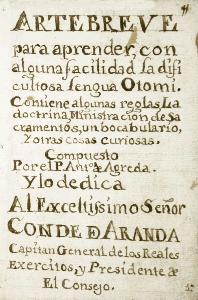 ARTE BREVE
para aprender, con
alguna facilidad la difi
cultosa lengua Otomi.
Contiene algunas reglas, La
doctrina, Ministracion, de Sa
cramentos, un bocabulario,
y otras cosas curiosas.
Compuesto
Por el P. Antº. de Agreda.
Y lo dedica
Al Exceltissimo Señor
CONDE DE ARANDA
Capitan General de los Reales
Exercitos, y Presidente de
El Consejo.